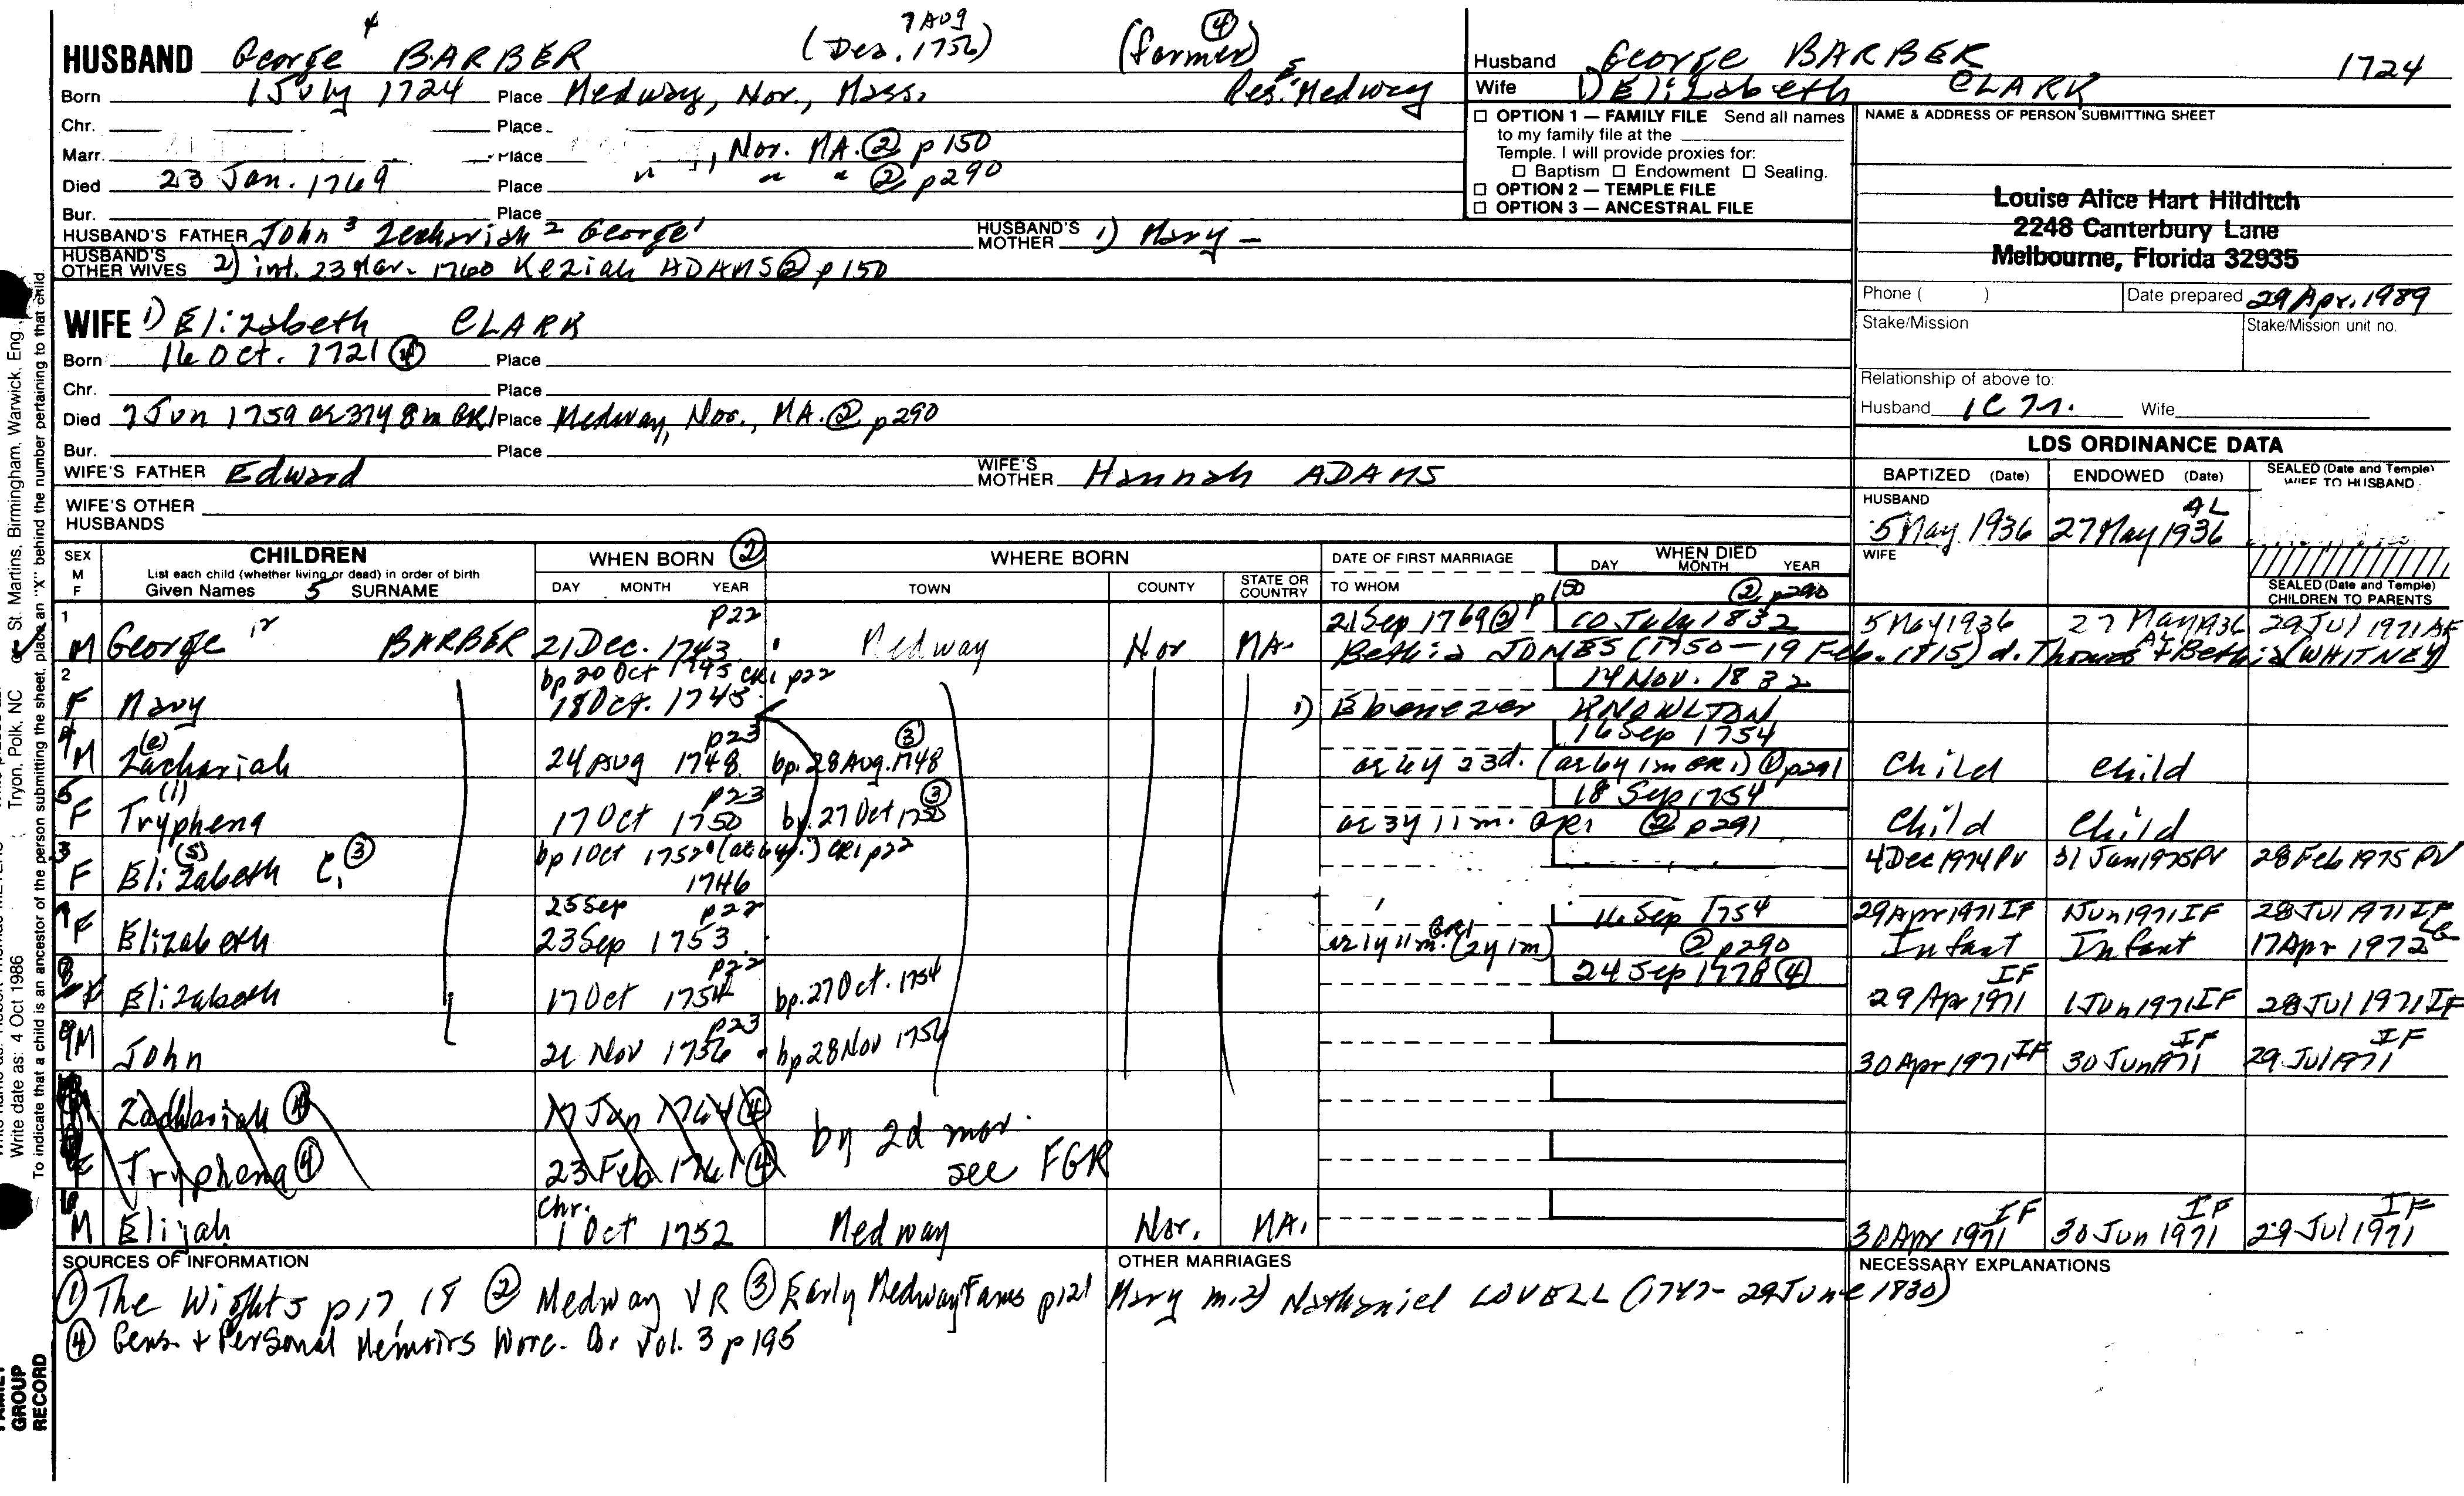 7 Aug
4
HUSBAND George BARBER (Des. 1756) (farmer) ④
Born 1 July 1724 Place Medway, Nor., Mass. Res. Medway
Chr. Place
Marr. Place , Nor. MA. ② p 150
Died 23 Jan. 1769 Place " " " ② p290
Bur. Place
HUSBAND'S FATHER John 3 Zechariah 2 George 1 HUSBAND'S MOTHER 1) Mary —
HUSBAND'S OTHER WIVES 2) int. 23 Mar. 1760 Keziah ADAMS ② p 150
WIFE 1) Elizabeth CLARK
Born 16 Oct. 1721 ④ Place
Chr. Place
Died 7 Jun 1759 ae 37y 8m GR1 Place Medway, Nor., MA. ② p290
Bur. Place
WIFE'S FATHER Edward WIFE'S MOTHER Hannah ADAMS
WIFE'S OTHER HUSBANDS
Husband George BARBER 1724
Wife 1) Elizabeth CLARK
☐ OPTION 1 — FAMILY FILE Send all names
to my family file at the
Temple. I will provide proxies for:
☐ Baptism ☐ Endowment ☐ Sealing.
☐ OPTION 2 — TEMPLE FILE
☐ OPTION 3 — ANCESTRAL FILE
NAME & ADDRESS OF PERSON SUBMITTING SHEET
Louise Alice Hart Hilditch
2248 Canterbury Lane
Melbourne, Florida 32935
Phone ( ) Date prepared 29 Apr. 1989
Stake/Mission Stake/Mission unit no.
Relationship of above to:
Husband 1C7r. Wife
LDS ORDINANCE DATA
BAPTIZED (Date) ENDOWED (Date) SEALED (Date and Temple) WIFE TO HUSBAND
HUSBAND AL
5 May 1936 27 May 1936
WIFE
SEALED (Date and Temple)
CHILDREN TO PARENTS
SEX M F CHILDREN WHEN BORN ② WHERE BORN DATE OF FIRST MARRIAGE WHEN DIED
List each child (whether living or dead) in order of birth
Given Names 5 SURNAME DAY MONTH YEAR TOWN COUNTY STATE OR COUNTRY TO WHOM DAY MONTH YEAR
p22 p150 ② p290
1 21 Sep 1769 ② 10 July 1832 5 May 1936 27 May 1936 29 Jul 1971
M George Jr BARBER 21 Dec. 1743 Medway Nor MA. Bethia JONES (1750 — 19 Feb. 1815) d. Thomas & Bethia (WHITNEY)
2 bp 20 Oct 1745 CR1 p22 14 Nov. 1832
F Mary 18 Oct. 1745 1) Ebenezer KNOWLTON
4 (e) p23 ③ 16 Sep 1754
M Zachariah 24 Aug 1748 bp. 28 Aug. 1748 ae 6y 23d. (ae 6y 1m GR1) ② p291 Child Child
5 (i) p23 ③ 18 Sep 1754
F Tryphena 17 Oct 1750 bp. 27 Oct 1750 ae 3y 11m. GR1 ② p291 Child Child
3 (s) bp 1 Oct 1752 (ae 6y.) CR1 p22 4 Dec 1974 PV 31 Jan 1975 PV 28 Feb 1975 PV
F Elizabeth C. ③ 1746
7 25 Sep p22 16 Sep 1754 29 Apr 1971 IF 1 Jun 1971 IF 28 Jul 1971 IF
F Elizabeth 23 Sep 1753 ae 1y 11m. GR1 (2y 1m) ② p290 Infant Infant 17 Apr 1972
8 p22 24 Sep 1778 ④ IF
F Elizabeth 17 Oct 1754 bp. 27 Oct. 1754 29 Apr 1971 1 Jun 1971 IF 28 Jul 1971 IF
9 p23
M John 21 Nov 1756 bp 28 Nov 1756 30 Apr 1971 IF 30 Jun 1971 IF 29 Jul 1971 IF
Zachariah ④ 17 Jan 1764 ④ by 2d mar.
F Tryphena ④ 23 Feb 1761 ④ see FGR
Chr.
6 M Elijah 1 Oct 1752 Medway Nor. MA. 30 Apr 1971 IF 30 Jun 1971 IF 29 Jul 1971 IF
SOURCES OF INFORMATION OTHER MARRIAGES NECESSARY EXPLANATIONS
① The Wights p 17, 18 ② Medway VR ③ Early Medway Fams p121 Mary m. 2) Nathaniel LOVELL (1747 - 29 June 1830)
④ Gens. & Personal Memoirs Worc. Co Vol. 3 p 195
To indicate that a child is an ancestor of the person submitting the sheet, place an "X" behind the number pertaining to that child.
St. Martins, Birmingham, Warwick, Eng.
Tryon, Polk, NC or
Write date as: 4 Oct 1986
FAMILY GROUP RECORD